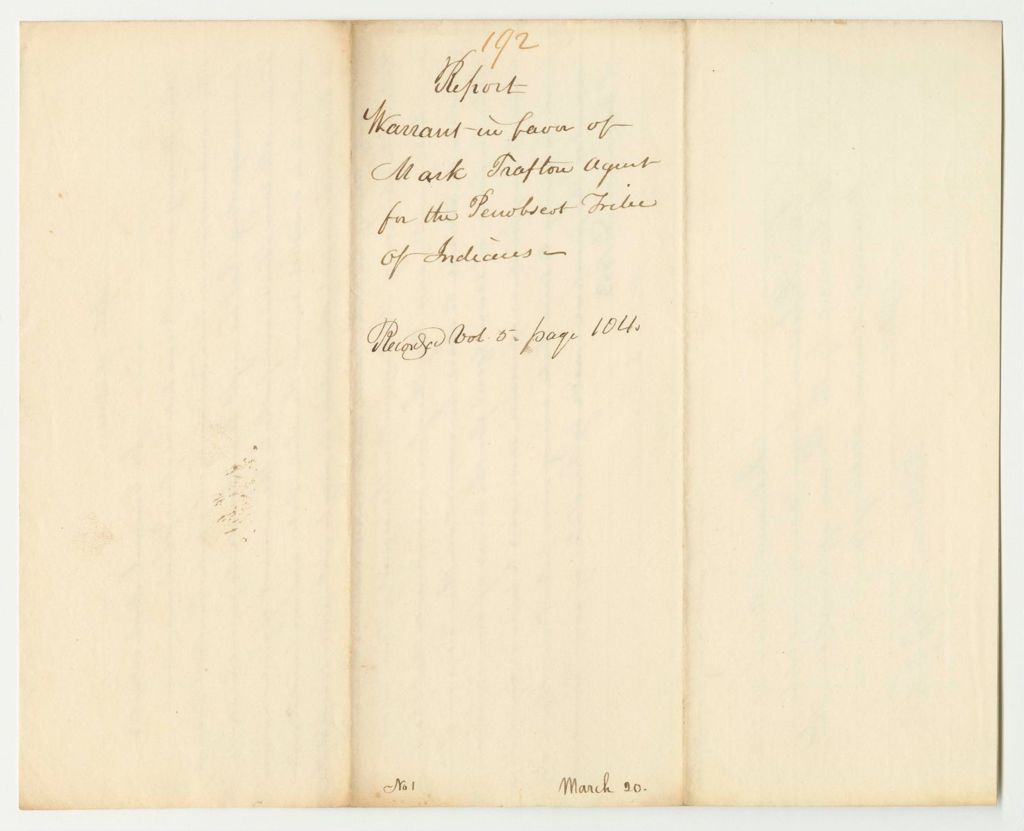 192
Report
Warrant in favor of
Mark Trafton Agent
for the Penobscot Tribe
of Indians -
Recorded Vol. 5. page 104.
No 1
March 20.